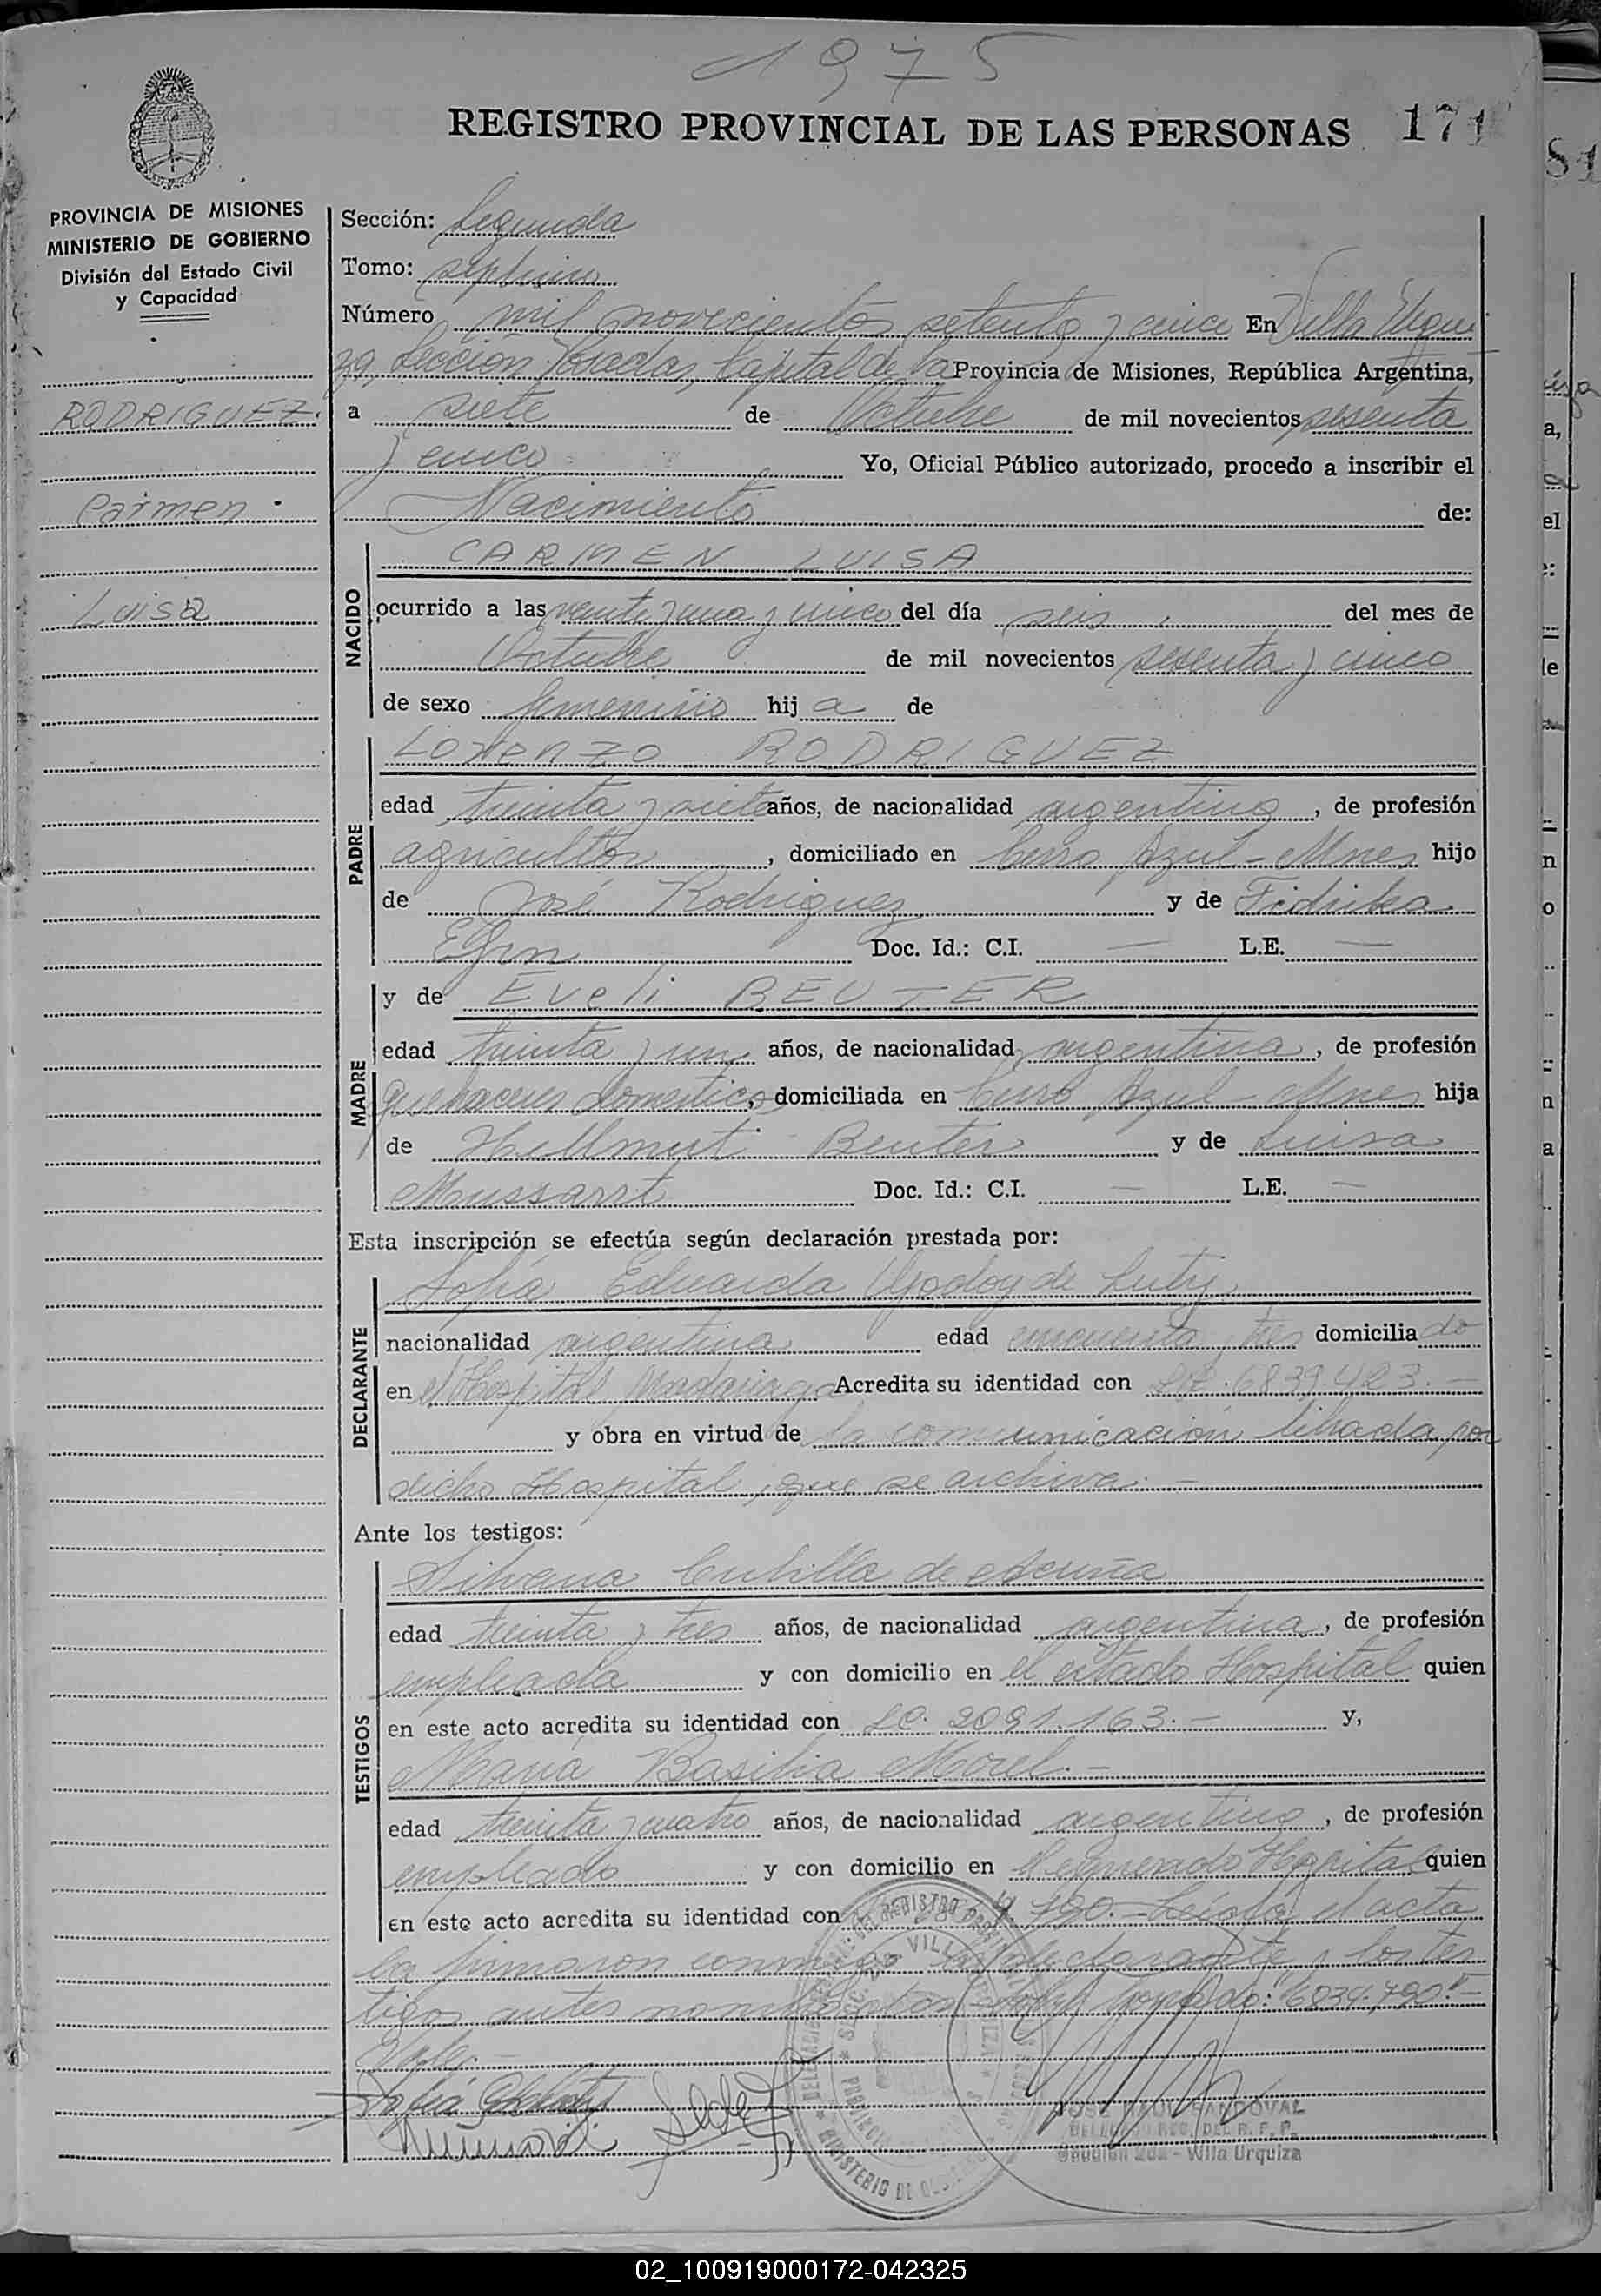 1975
REGISTRO PROVINCIAL DE LAS PERSONAS 171
81
PROVINCIA DE MISIONES
MINISTERIO DE GOBIERNO
División del Estado Civil
y Capacidad
RODRIGUEZ.
Carmen
Luisa
Sección: Segunda
Tomo: septimo
Número mil novecientos setenta y cinco En Villa Urqui
za, Sección Posadas, Capital de la Provincia de Misiones, República Argentina,
a siete de Octubre de mil novecientos sesenta
y cinco Yo, Oficial Público autorizado, procedo a inscribir el
Nacimiento de:
NACIDO
CARMEN LUISA
ocurrido a las veinte y una y cinco del día seis del mes de
Octubre de mil novecientos sesenta y cinco
de sexo femenino hij a de
PADRE
Lorenzo RODRIGUEZ
edad treinta y siete años, de nacionalidad argentino, de profesión
agricultor, domiciliado en Cerro Azul - Mnes hijo
de José Rodriguez y de Fidrika
Doc. Id.: C.I. — L.E. —
MADRE
y de Eveli BEUTER
edad treinta y un años, de nacionalidad argentina, de profesión
quehaceres domesticos, domiciliada en Cerro Azul - Mnes hija
de Hellmut Beuter y de Luisa
Mussarrt Doc. Id.: C.I. — L.E. —
Esta inscripción se efectúa según declaración prestada por:
DECLARANTE
Sofía Eduarda Godoy de Lutz
nacionalidad argentina edad cincuenta y tres domicilia do
en el Hospital Madariaga Acredita su identidad con 6839.423.—
y obra en virtud de la comunicación librada por
dicho Hospital, que se archiva.—
Ante los testigos:
TESTIGOS
Silvana Cubilla de Acuña
edad treinta y tres años, de nacionalidad argentina, de profesión
empleada y con domicilio en el citado Hospital quien
en este acto acredita su identidad con LC. 2091.163.— y,
María Basilia Morel.—
edad treinta y cuatro años, de nacionalidad argentino, de profesión
empleado y con domicilio en el expresado Hospital quien
en este acto acredita su identidad con 790.— Leída el acta
la firmaron conmigo la declarante y los tes
tigos antes nombrados "6834.790."—
Vale.—
JOSE RAUL SANDOVAL
DELEGADO REG. DEL R. P. P.
Sección 2da - Villa Urquiza
02_100919000172-042325